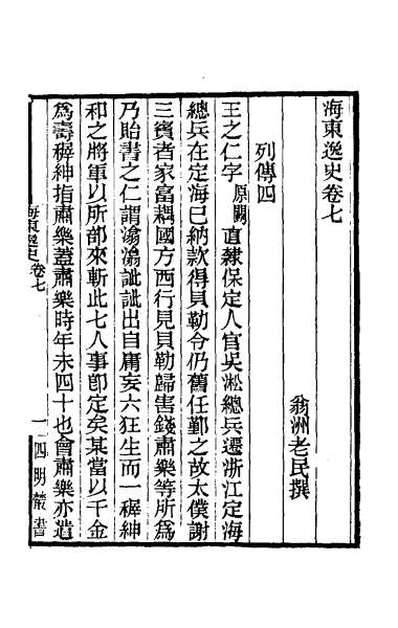 海東逸史卷七
翁洲老民撰
列傳四
王之仁字原闕直隸保定人官吳淞總兵遷浙江定海
總兵在定海已納款得貝勒令仍舊任鄞之故太僕謝
三賓者家富耦國方西行見貝勒歸害錢肅樂等所為
乃貽書之仁謂潝潝訿訿出自庸妄六狂生而一穉紳
和之將軍以所部來斬此七人事卽定矣某當以千金
為壽穉紳指肅樂蓋肅樂時年未四十也會肅樂亦遣
海東逸史卷七
一
四明叢書